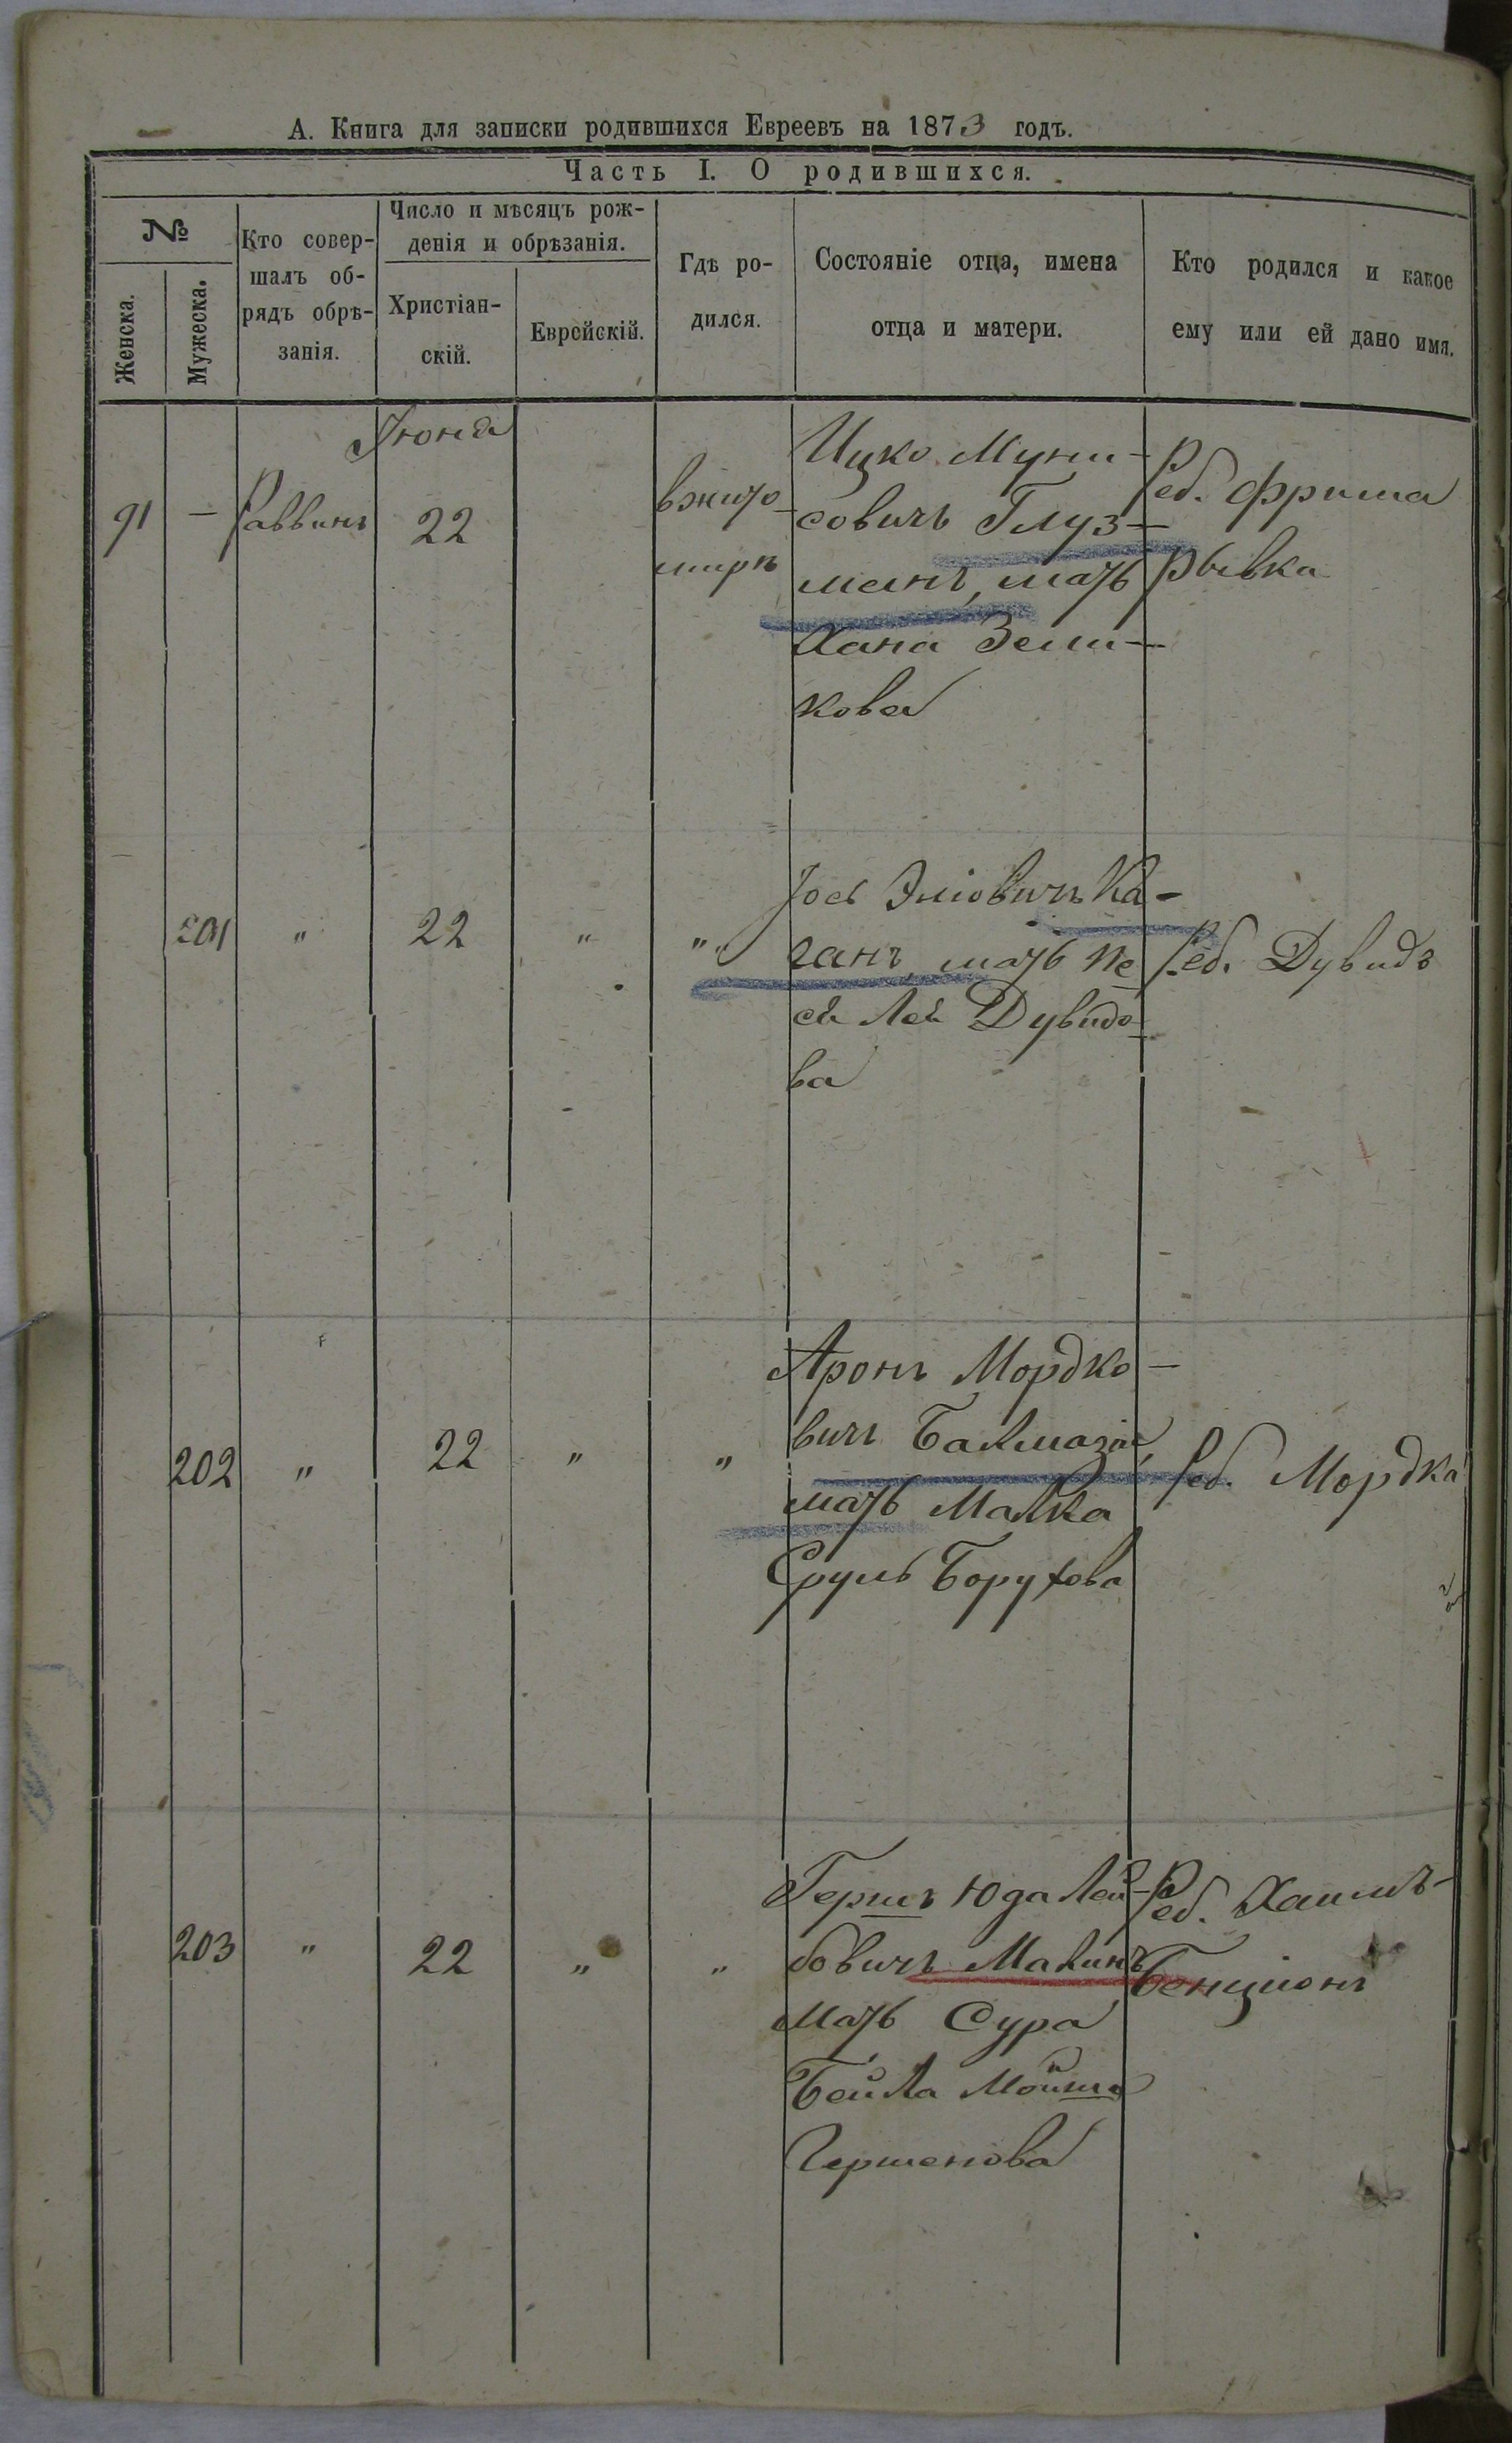 А. Книга для записки родившихся Евреевъ на 1873 годъ.
Часть I. О родившихся.
№
Женска.
Мужеска.
Кто совер-
шалъ об-
рядъ обрѣ-
занія.
Число и мѣсяцъ рож-
денія и обрѣзанія.
Христіан-
скій.
Еврейскій.
Гдѣ ро-
дился.
Состояніе отца, имена
отца и матери.
Кто родился и какое
ему или ей дано имя.
Іюня
91 — Раввинъ 22
вжито-
мирѣ
Ицко Муни-
совичъ Глуз-
манъ, мать
Хана Зели-
кова
Реб. Фрима
Рывка
201 " 22 " "
Іось Эліовичъ Ка-
ганъ, мать Не
ся Лея Дувидо-
ва
Реб. Дувидъ
202 " 22 " "
Аронъ Мордко-
вичъ
мать Малка
Сруль Борухова
Реб. Мордка
203 " 22 " "
Гершъ Юда Лей-
бовичъ Макинъ
мать Сура
Бейла Мойша
Гершенова
Реб. Хаимъ-
Бенціонъ